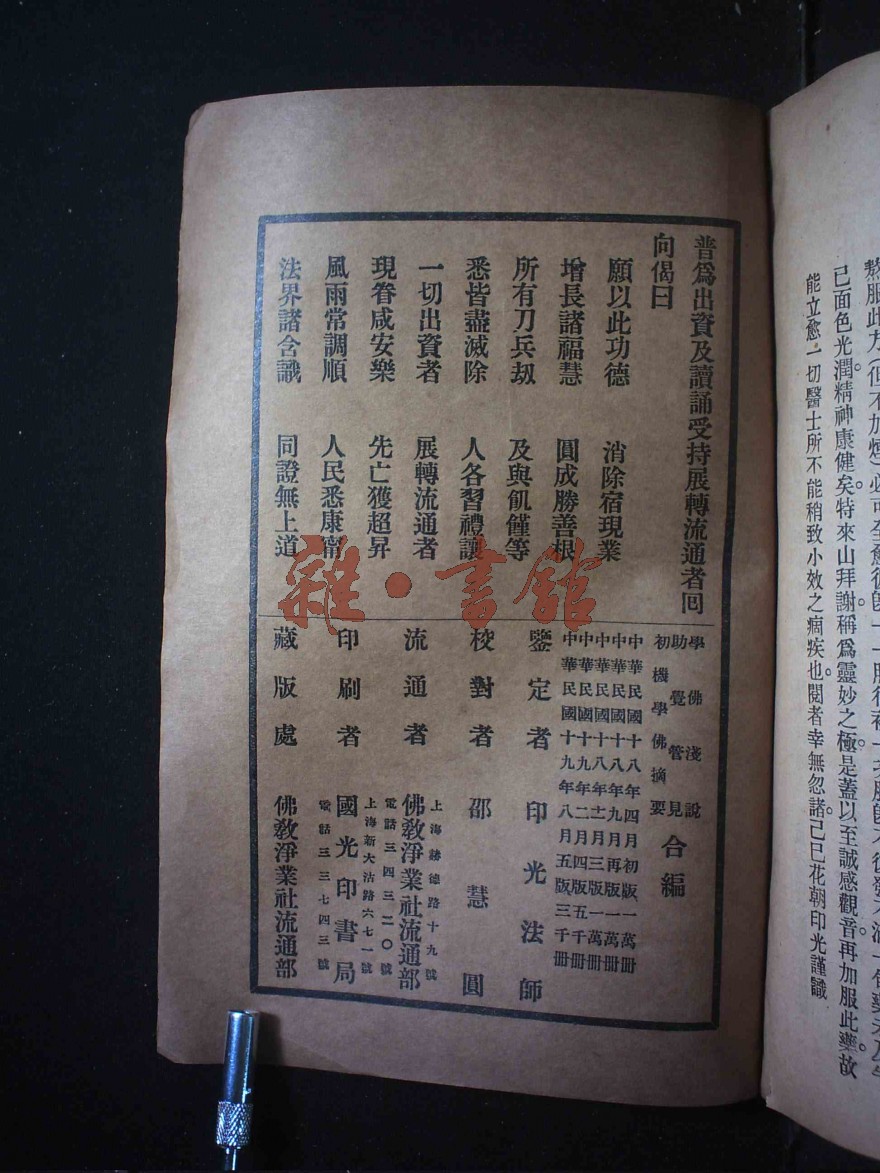 熬服此方(但不加煙)必可全愈後
己面色光潤。精神康健矣。特來山拜謝。稱爲靈妙之極。是蓋以至誠感觀音。再加服此藥。故
能立愈一切醫士所不能稍致小效之痼疾也。閱者幸無忽諸。己巳花朝印光謹識
普爲出資及讀誦受持展轉流通者回
向偈曰
願以此功德 消除宿現業
增長諸福慧 圓成勝善根
所有刀兵劫 及與飢饉等
悉皆盡滅除 人各習禮讓
一切出資者 展轉流通者
現眷咸安樂 先亡獲超昇
風雨常調順 人民悉康甯
法界諸含識 同證無上道
學佛淺說
助覺管見
初機學佛摘要
合編
中華民國十八年四月初版一萬冊
中華民國十八年九月再版一萬冊
中華民國十八年十二月三版一萬冊
中華民國十九年二月四版五千冊
中華民國十九年八月五版三千冊
鑒定者 印光法師
校對者 邵慧圓
流通者 佛教淨業社流通部
上海赫德路十九號
電話三四三二〇號
印刷者 國光印書局
上海新大沽路六七一號
電話三三七四三號
藏版處 佛教淨業社流通部
雜·書館